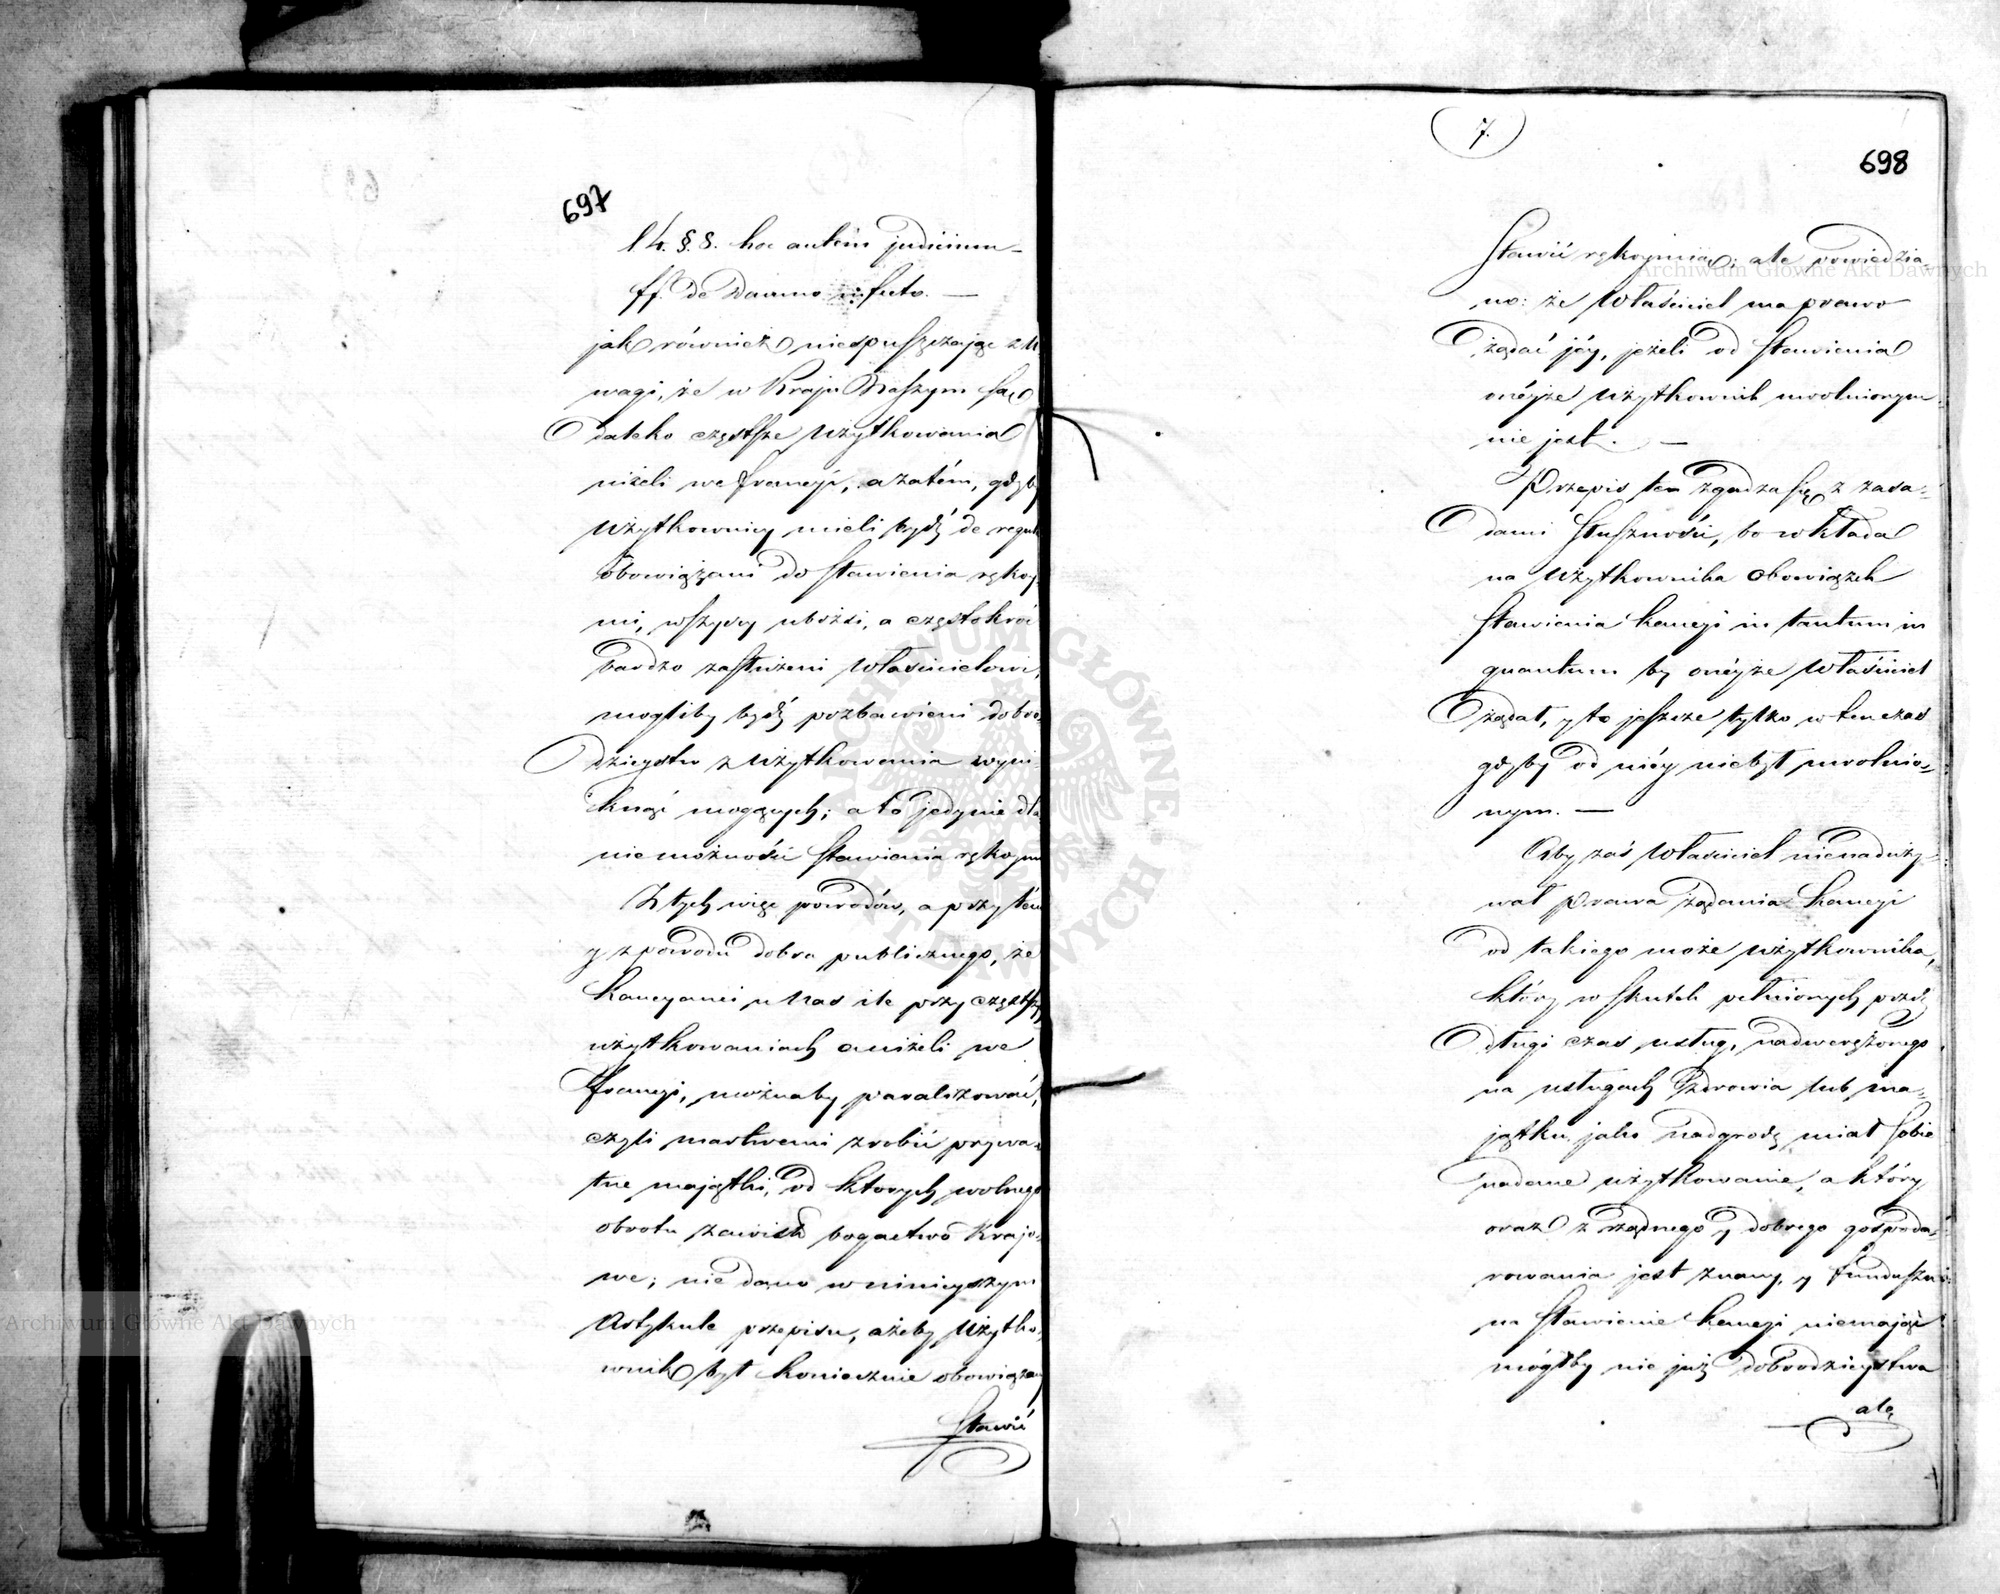 697
l 4. §. 8. hoc autem judicium
ff. de Damno infecto. —
jak również niespuszczając z u
wagi, że w Kraju Naszym są
daleko częstsze użytkowania
niżeli we francyi, a zatém, gdyby
użytkownicy mieli bydź de regula
obowiązani do stawienia rękoy-
mi, wszyscy ubożsi, a częstokroć
bardzo zasłużeni właścicielowi,
mogliby bydź pozbawieni dobro-
dzieystw z użytkowania wyni-
knąć mogących; a to jedynie dla
niemożności stawienia rękoymi
Z tych więc powodów, a przytém
y z powodu dobra publicznego, że
kaucyami u nas ile przy częstszych
użytkowaniach aniżeli we
francyi, możnaby paraliżować,
czyli martwemi zrobić prywa-
tne majątki, od ktorych wolnego
obrotu zawisło bogactwo Krajo-
we; nie dano w ninieyszym
Artykule przepisu, ażeby Użytko-
wnik był koniecznie obowiązany
Stawić
7.
698
Stawić rękoymią; ale powiedzia-
no: że Właściciel ma prawo
żądać jéy, jeżeli od stawienia
onéyże użytkownik uwolnionym
nie jest. —
Przepis ten zgadza się z zasa-
dami słuszności, bo wkłada
na użytkownika obowiązek
stawienia kaucyi in tantum in
quantum by onéyże właściciel
żądał, y to jeszcze tylko w tenczas
gdyby od niéy niebył uwolnio-
nym. —
Aby zaś właściciel nienaduży-
wał prawa żądania kaucyi
od takiego może użytkownika,
który w skutek pełnionych przéz
długi czas usług, nadwerężonego
na usługach zdrowia lub ma-
jątku jako nadgrodę miał sobie
nadane użytkowanie, a który
oraz z rządnego y dobrego gospoda-
rowania jest znany, y funduszu
na stawienie kaucyi niemając
mógłby nie już dobrodzieystwa
ale
Archiwum Główne Akt Dawnych
Archiwum Główne Akt Dawnych
ARCHIWUM GŁÓWNE AKT DAWNYCH